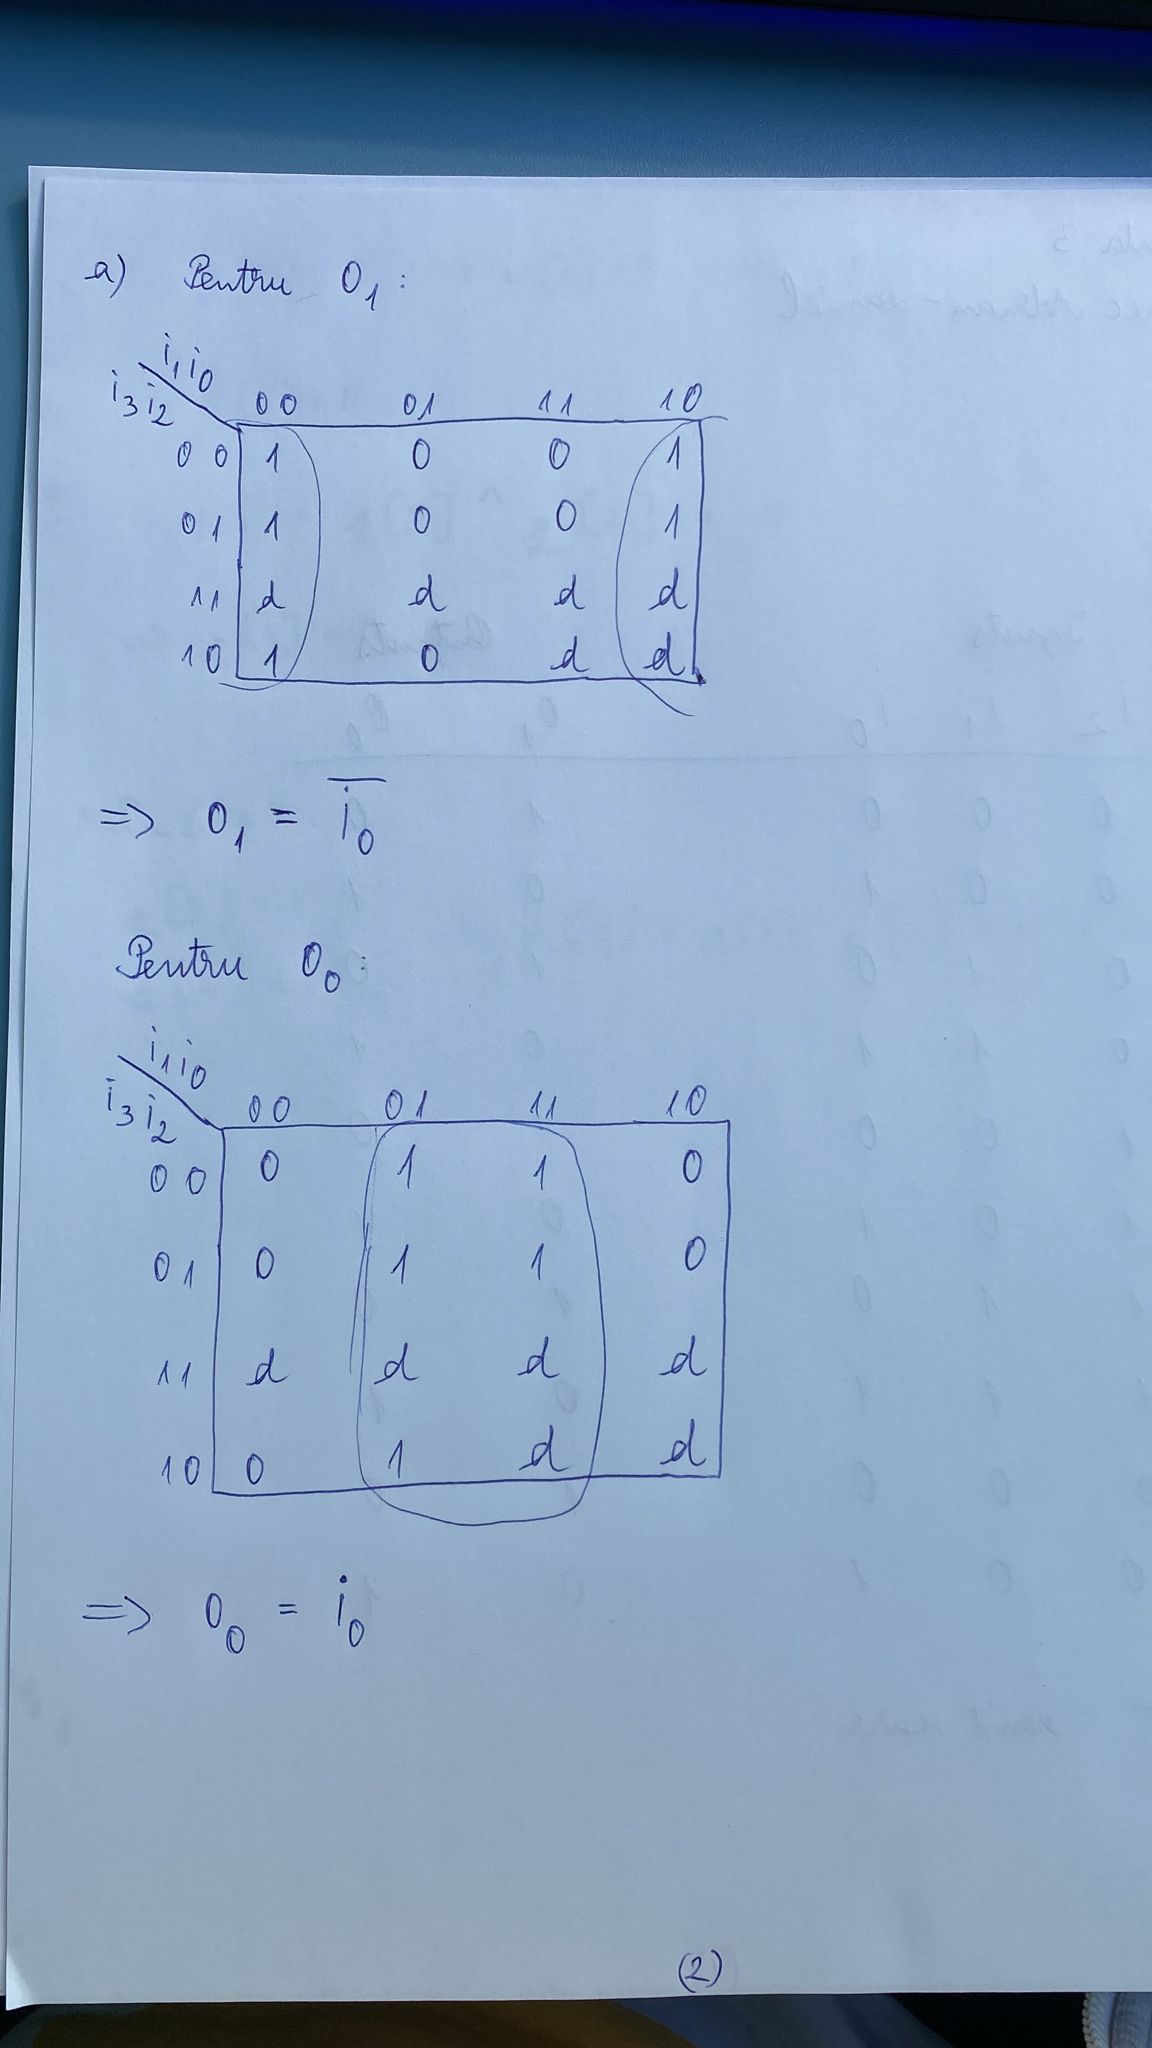 a) Pentru O₁ :
i₁i₀
i₃i₂ 00 01 11 10
00 1 0 0 1
01 1 0 0 1
11 d d d d
10 1 0 d d
=> O₁ = i̅₀
Pentru O₀ :
i₁i₀
i₃i₂ 00 01 11 10
00 0 1 1 0
01 0 1 1 0
11 d d d d
10 0 1 d d
=> O₀ = i₀
(2)